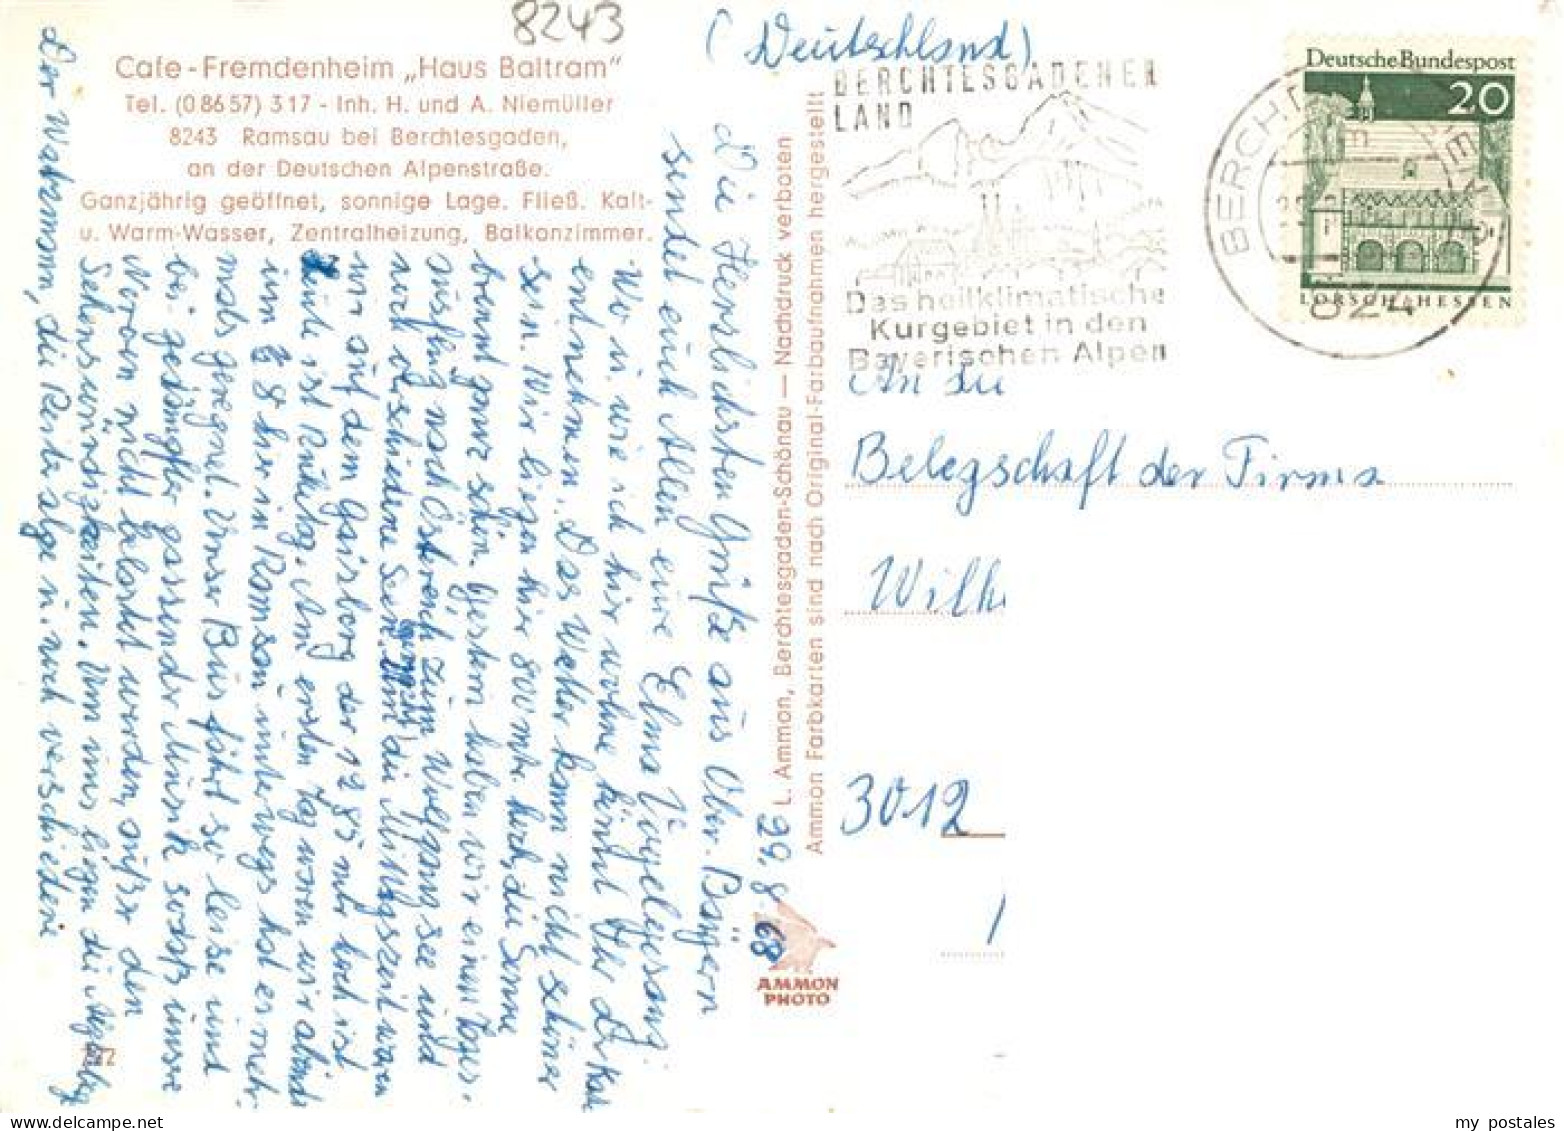 8243
(Deutschland)
Cafe-Fremdenheim „Haus Baltram"
Tel. (08657) 317 - Inh. H. und A. Niemüller
8243 Ramsau bei Berchtesgaden,
an der Deutschen Alpenstraße.
Ganzjährig geöffnet, sonnige Lage. Fließ. Kalt-
u. Warm-Wasser, Zentralheizung, Balkonzimmer.
29.8.68
Die Herzlichsten Grüße aus Ober. Bayern
sendet euch Allen eure Elma
Wo u. wie ich hier wohne könnt Ihr d. Karte
entnehmen. Das Wetter kann nicht schöner
sein. Wir liegen hier 800 mtr. hoch, die Sonne
brennt ganz schön. Gestern haben wir einen Tages-
ausflug nach Östereich, zum Wolfgangsee und
noch verschiedene Seen. Um die Mittagszeit waren
wir auf dem Gaisberg der 1285 mtr hoch ist
Heute ist Ruhetag. Am ersten Tag waren wir abends
um 8 hier in Ramsau unterwegs hat es mehr-
mals geregnet. Unser Bus fährt so leise und
bei gedämpfter passender Musik sodaß unsere
Nerven nicht belastet werden, außer den
Sehenswürdigkeiten. Um uns liegen die
Der Watzmann, die Reiteralpe u. noch verschiedene
222
L. Ammon, Berchtesgaden-Schönau — Nachdruck verboten
Ammon Farbkarten sind nach Original-Farbaufnahmen hergestellt
AMMON
PHOTO
BERCHTESGADENER
LAND
Das heilklimatische
Kurgebiet in den
Bayerischen Alpen
824
Deutsche Bundespost
20
LORSCH/HESSEN
An die
Belegschaft der Firma
Wilh
3012
my postales